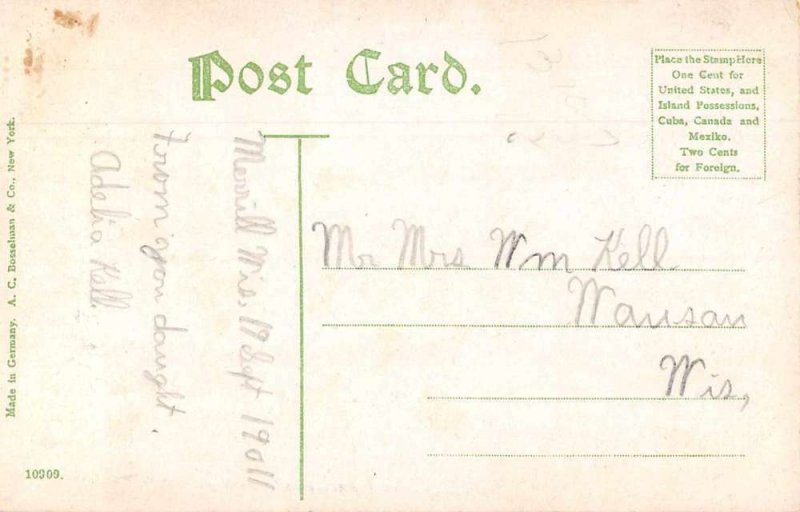 Post Card.
Place the Stamp Here
One Cent for
United States, and
Island Possessions,
Cuba, Canada and
Mexiko.
Two Cents
for Foreign.
Merrill Wis. 17 Sept 19011
from you daught.
Adelia Kell.
Mr Mrs Wm Kell
Wausau
Wis,
Made in Germany. A. C. Bosselman & Co., New York.
10909.